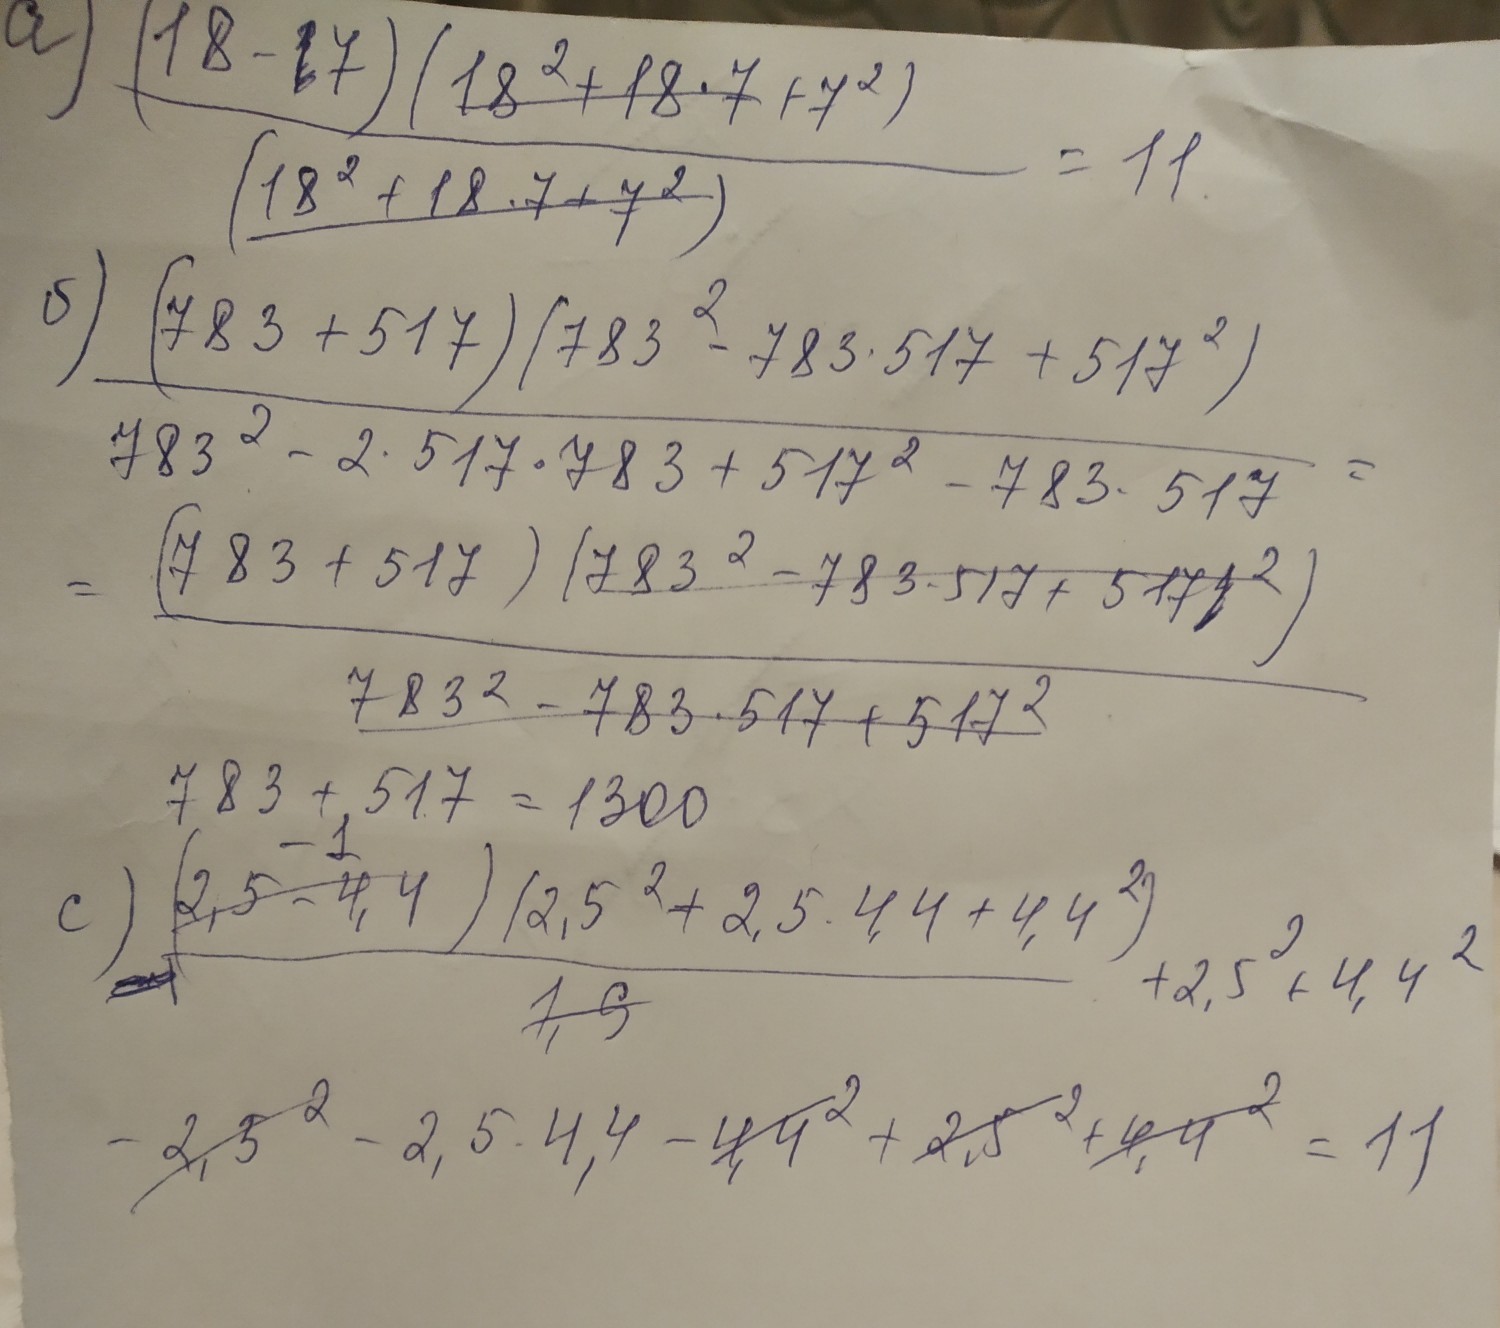 а) (18-7)(18²+18·7+7²)
(18²+18·7+7²) = 11
б) (783+517)(783²-783·517+517²)
783²-2·517·783+517²-783·517 =
= (783+517)(783²-783·517+517²)
783²-783·517+517²
783+517=1300
-1
с) (2,5-4,4)(2,5²+2,5·4,4+4,4²)
1,9 +2,5²+4,4²
-2,5²-2,5·4,4-4,4²+2,5²+4,4²=11